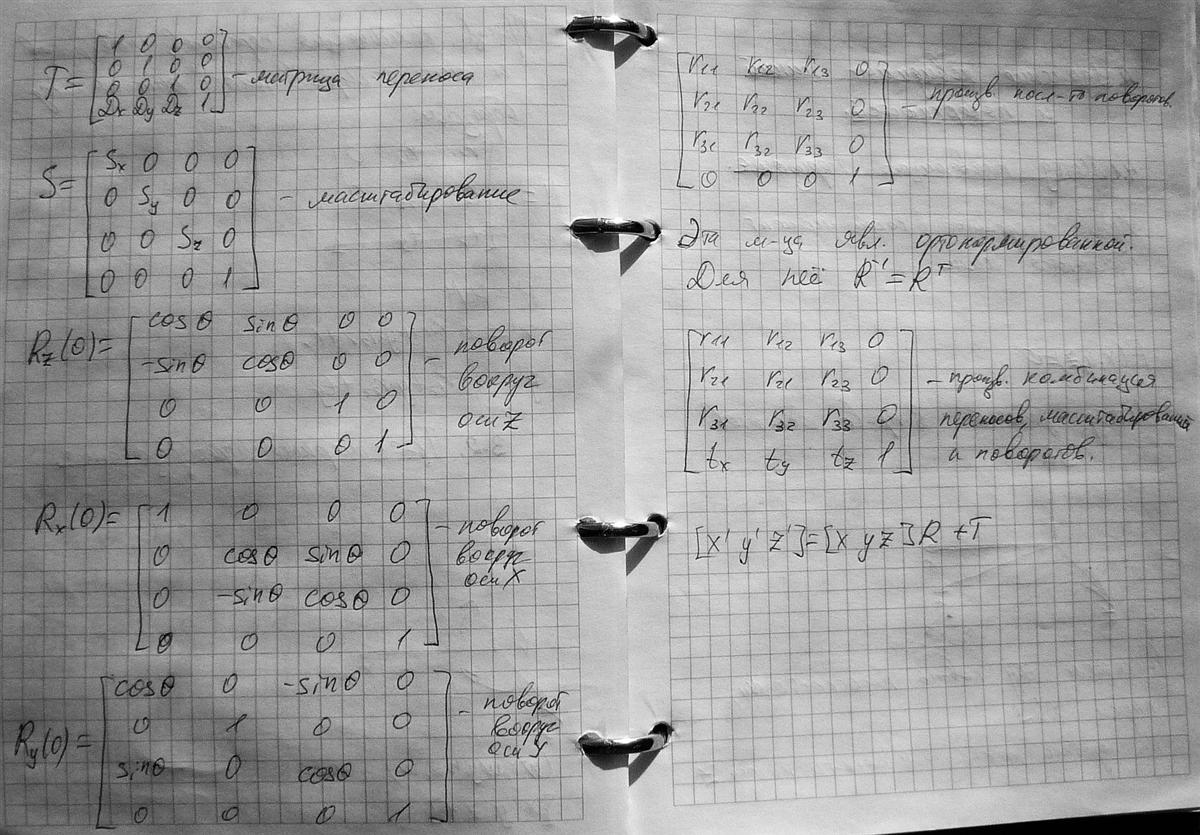 T = [1 0 0 0
0 1 0 0
0 0 1 0
Dx Dy Dz 1] - матрица переноса
S = [Sx 0 0 0
0 Sy 0 0
0 0 Sz 0
0 0 0 1] - масштабирование
Rz(0) = [cosθ sinθ 0 0
-sinθ cosθ 0 0
0 0 1 0
0 0 0 1] - поворот
вокруг
оси Z
Rx(0) = [1 0 0 0
0 cosθ sinθ 0
0 -sinθ cosθ 0
0 0 0 1] - поворот
вокруг
оси X
Ry(0) = [cosθ 0 -sinθ 0
0 1 0 0
sinθ 0 cosθ 0
0 0 0 1] - поворот
вокруг
оси Y
[r11 r12 r13 0
r21 r22 r23 0
r31 r32 r33 0
0 0 0 1] - произв. посл-ть поворотов.
Эта м-ца явл. ортонормированной.
Для неё R⁻¹ = Rᵀ
[r11 r12 r13 0
r21 r21 r23 0
r31 r32 r33 0
tx ty tz 1] - произв. комбинация
переносов, масштабирований
и поворотов.
[x' y' z'] = [x y z] R + T